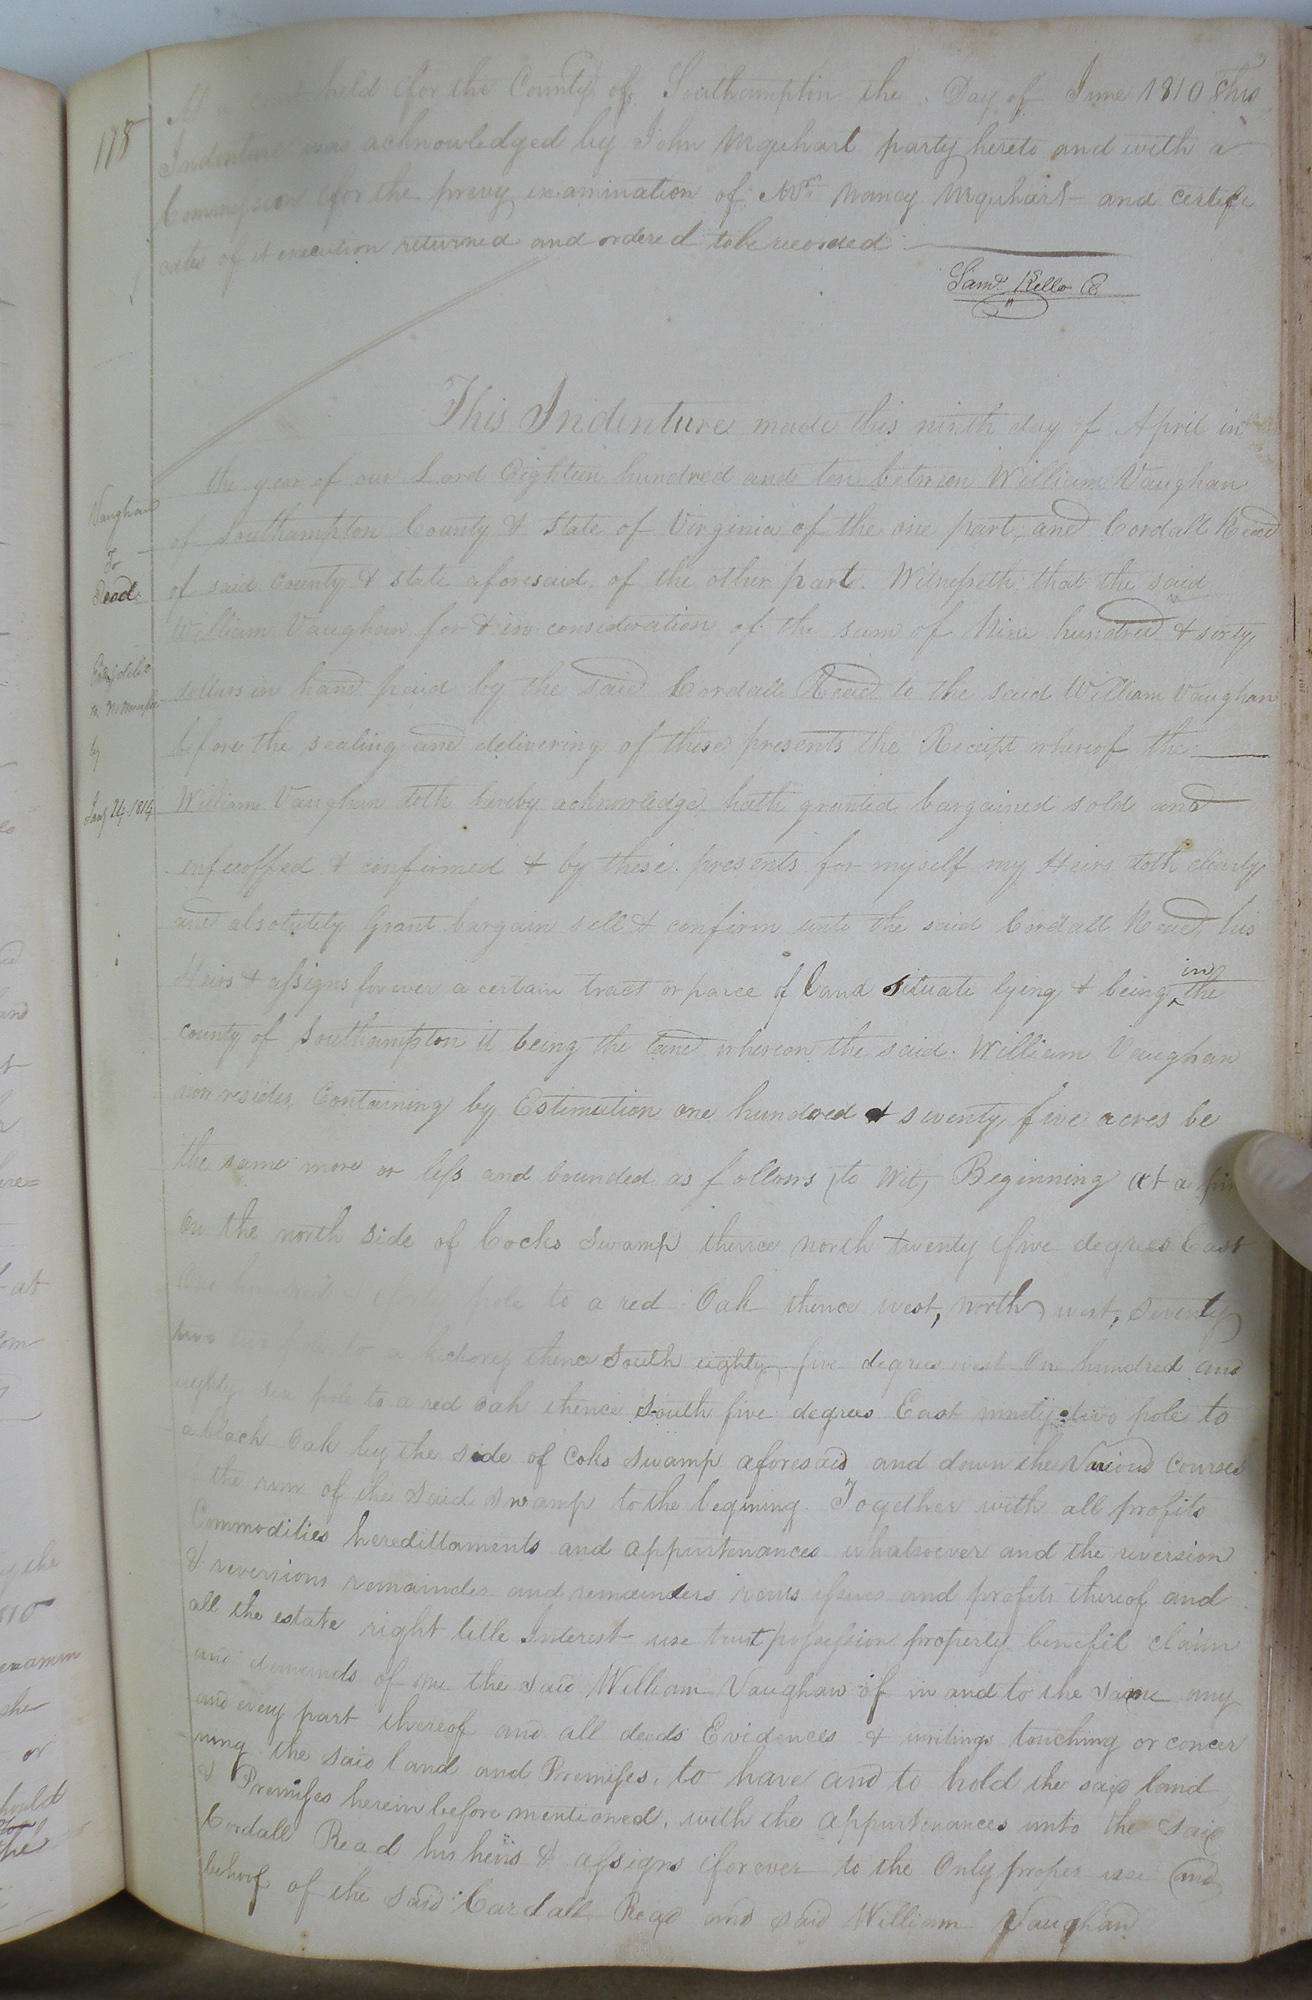 118
At a court held for the County of Southampton the Day of June 1810 This
Indenture was acknowledged by John Urquhart party hereto and with a
Commission for the privy examination of Mrs Nancy Urquhart and certifi
cates of it execution returned and ordered to be recorded
Saml. Kello C
Vaughan
To
Read
by
Jany 24 1814
This Indenture made this ninth day of April in
the year of our Lord Eighteen hundred and ten between William Vaughan
of Southampton County & State of Virginia of the one part, and Cordall Read
of said County & state aforesaid, of the other part. Witnesseth that the said
William Vaughan for & in consideration of the sum of Nine hundred & sixty
dollars in hand paid by the said Cordall Read to the said William Vaughan
before the sealing and delivering of these presents the Receipt whereof the
William Vaughan doth hereby acknowledge hath granted bargained sold and
enfeoffed & confirmed & by these presents for myself my Heirs doth clearly
and absolutely Grant bargain sell & confirm unto the said Cordall Read, his
Heirs & assigns forever a certain tract or parce of land situate lying & being in the
county of Southampton it being the land whereon the said William Vaughan
now resides, Containing by Estimation one hundred & seventy five acres be
the same more or less and bounded as follows, to Wit, Beginning at a
on the north side of Cocks Swamp thence north twenty five degrees East
One hundred & pole to a red Oak thence west, north, west, seventy
two pole to a hickory thence South eighty five degrees west One hundred and
eighty six pole to a red oak thence South five degrees East ninety-two pole to
a black Oak by the side of Coks Swamp aforesaid and down the Various courses
the run of the said swamp to the begining. Together with all profits
Commodities heredittaments and appurtenances whatsoever and the reversion
& reversions remainder and remainders rents issues and profits thereof and
all the estate right title Interest use trust possession property benefit claim
and demands of me the said William Vaughan of in and to the same any
and every part thereof and all deeds Evidences & writings touching or concer
ning the said land and Premises, to have and to hold the said land
& Premises herein before mentioned, with the appurtenances unto the said
Cordall Read his heirs & assigns forever to the Only proper use and
behoof of the said Cardall Read and said William Vaughan